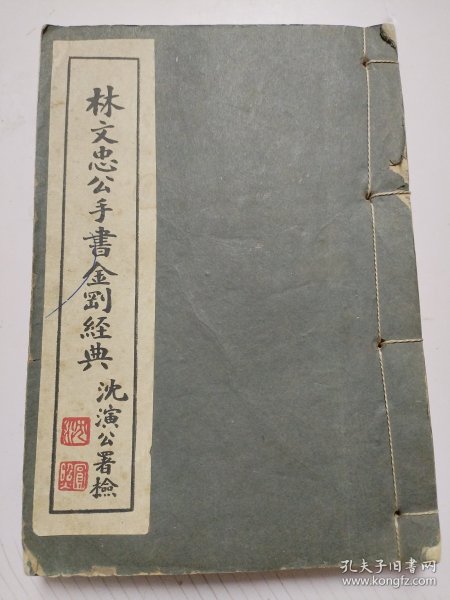 林文忠公手書金剛經典
沈演公署檢
孔夫子旧书网
www.kongfz.com